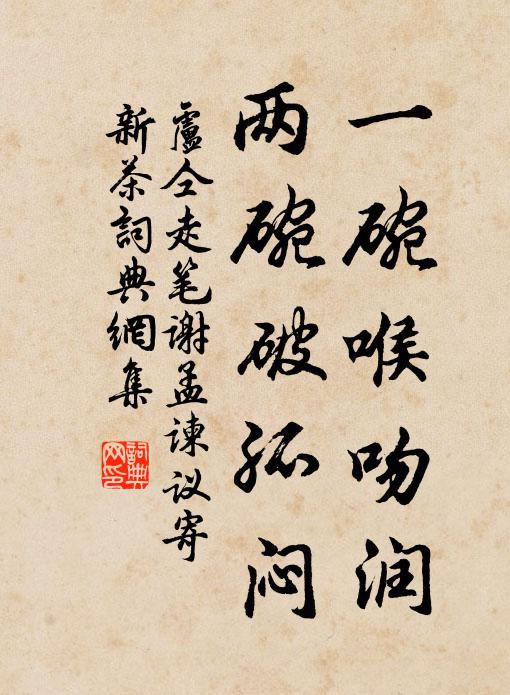 一碗喉吻润
两碗破孤闷
盧仝走笔谢孟諫议寄
新茶詞典網集
詞典
网印